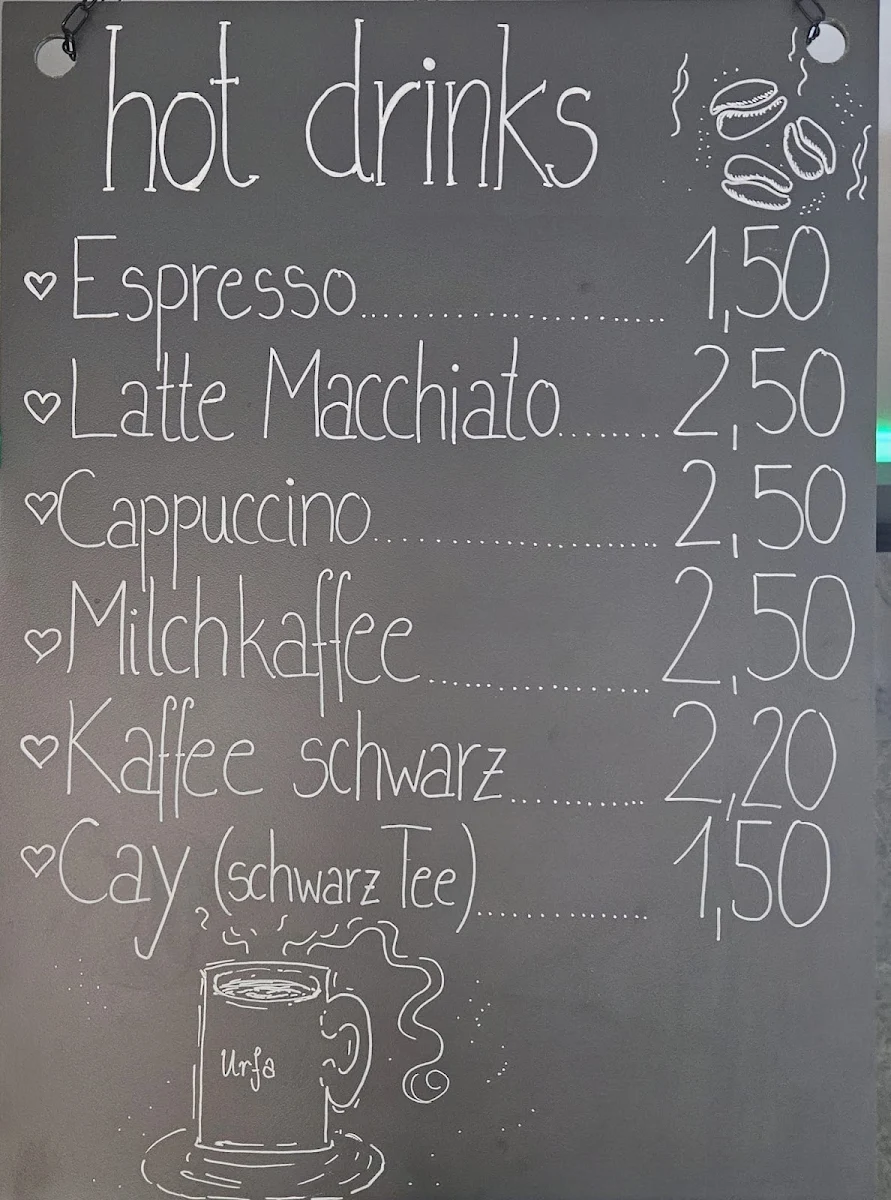 hot drinks
♡ Espresso........................ 1,50
♡ Latte Macchiato........ 2,50
♡ Cappuccino........................ 2,50
♡ Milchkaffee................ 2,50
♡ Kaffee schwarz............ 2,20
♡ Cay (schwarz Tee)............... 1,50
Urfa